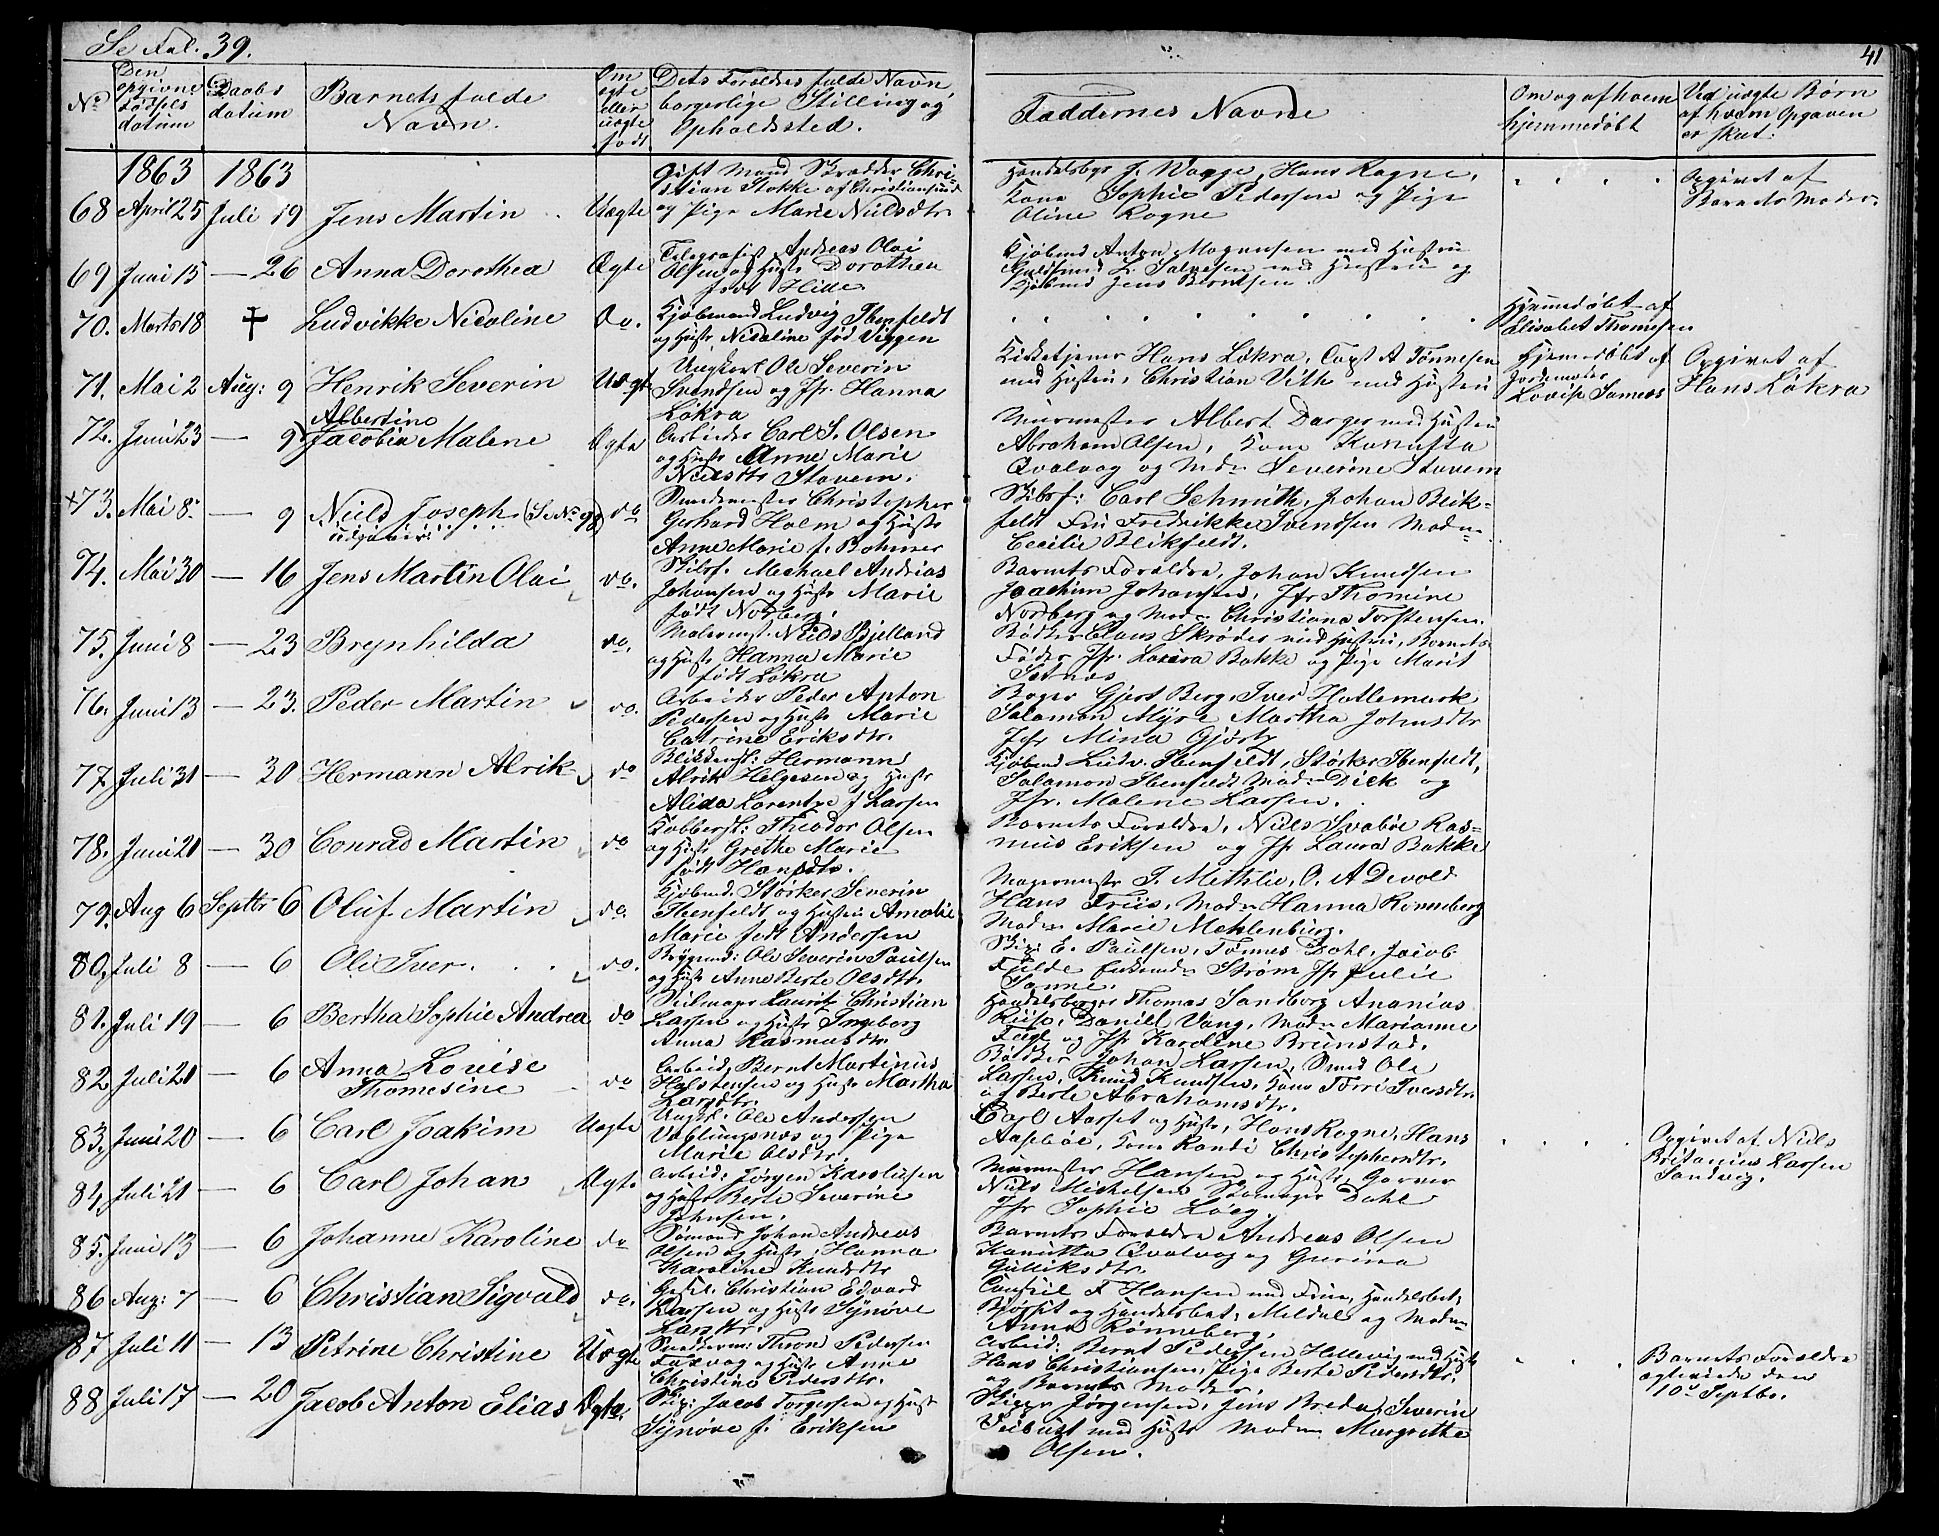 Se Fol. 39.
41
No
Den opgivne fødsels datum
Daabs datum
Barnets fulde Navn.
Om ægte eller uægte født.
Dets Forældres fulde Navn, borgerlige Stilling og Opholdssted.
Faddernes Navne
Om og af hvem hjemmedøbt
Ved uægte Børn af hvem Opgaven er skeet.
1863 1863
68 April 25 Juli 19 Jens Martin Uægte
Gift Mand Skrædder Chri-
stian Stokke af Christiansund
og Pige Marie Nielsdtr
Handelsbgr J. Wagge, Hans Rogne,
Kone Sophie Pedersen og Pige
Oline Rogne
Opgivet af
Barnets Moder
69 Juni 15 — 26 Anna Dorothea Ægte
Telegrafist Andreas Olai
Olsen og Hustr Dorothea
født Hille
Kjøbmd Anton Mogensen med Hustru
Guldsmed L. Salvesen med Hustru og
Kjøbmd Jens Berntsen.
70. Marts 18 † Ludvikke Nicoline Do.
Kjøbmand Ludvig Ibenfeldt
og Hustr Nicoline fød Viggen
Hjemmedøbt af
Elisabet Thomesen
71. Mai 2 Aug: 9 Henrik Severin Uægte
Ungkarl Ole Severin
Svendsen og Jfr. Hanna
Løkra
Kirketjener Hans Løkra, Capt A Tønnesen
med Hustru, Christian Vith med Hustru
Hjemedøbt af
Jordemoder
Lovise Sanness
Opgivet af
Hans Løkra
72. Juni 23 — 9 Albertine
Jacobia Malene Ægte
Arbeider Carl S. Olsen
og Hustr Anne Marie
Nielsdtr Stavem.
Muurmester Albert Darger med Hustru
Abraham Olsen, Kone Kanutta
Qvalvag og Mdm Severine Stavem
×73. Mai 8 — 9 Niels Joseph (Se No 98) do
udgaaer!
Bundtmester Christopher
Gerhard Holm og Hustr
Anne Marie f. Bohmer
Skibsf: Carl Schmith, Johan Blik-
feldt Fru Fredrikke Svendsen Madm
Cecilie Blikfeldt.
74. Mai 30 — 16 Jens Martin Olai do.
Skibsf. Mechael Andreas
Johansen og Hustr Marie
født Norberg.
Barnets Forældre, Johan Knudsen
Joachim Johansen, Jfr Thomine
Norberg og Mdm Christiane Torstensen.
75. Juni 8 — 23 Brynhilda do.
Malermst. Niels Bjelland
og Hustr Hanna Marie
født Løkra
Bødker Claus Skrødes med Hustru, Barnets
Fader Jfr. Lovera Bakke og Pige Marit
Sætnes
76. Juni 13 — 23. Peder Martin do.
Arbeider Peder Anton
Pedersen og Hustr Marie
Catrine Eriksdtr.
Bager Gjert Berg, Iver Hatlemark
Salamon Myre Martha Johnsdtr
Jfr Mina Gjørtz
77. Juli 31 — 30 Hermann Alrik do
Blikkensl: Hermann
Alrik Helgesen og Hustr
Alida Lorentze f Larsen
Kjøbmd Ludv. Ibenfeldt, Størker Ibenfeldt,
Salamon Ibenfeldt Madm Dick og
Jfr. Malene Larsen.
78. Juni 21 — 30 Conrad Martin do
Kobbersl: Theodor Olsen
og Hustr Grethe Marie
født Hansdtr.
Barnets Forældre, Niels Svabøe Ras-
mus Eriksen og Jfr Laura Bakke
79. Aug 6 Septbr 6 Oluf Martin do.
Kjøbmd: Størker Severin
Ibenfeldt og Hustru Amalie
Marie født Andersen
Magermester T. Methlie, O. A Devold
Hans Friis, Madm Hanna Rønneberg
Madm Marie Mehlenburg.
80. Juli 8 — 6 Ole Iver do.
Brygmd: Ole Severin Paulsen
og Hustr Anne Berte Olsdtr.
Skip: E. Paulsen, Tømes Dahl, Jacob
Fjelde Enkemdm Strøm Jfr Julie
Sanne.
81. Juli 19 — 6 Bertha Sophie Andrea do
Seilmager Lauritz Christian
Larsen og Hustr Ingeborg
Anna Rasmusdtr
Handelsborger Thomas Sandborg Ananias
Riise, Daniel Vang, Madm Marianne
Fugl og Jfr Karoline Brunstad.
82. Juli 21 — 6 Anna Lovise
Thomesine do
Arbeid, Bernt Martinus
Holstensen og Hustr Martha
Larsdtr.
Bødker Johan Larsen, Smed Ole
Larsen, Knud Knudsen, Kone Torri Iversdtr
og Berte Abrahamsdtr.
83. Juni 20 — 6 Carl Joakim Uægte
Ungkl: Ole Andersen
Veblungsnæs og Pige
Marie Olsdtr.
Carl Aarset og Hustr, Hans Rogne, Hans
Aspbøe, Kone Randi Christophersdtr.
Opgivet af Niels
Britanius Larsen
Sandvig.
84. Juli 21 — 6 Carl Johan Ægte
Arbeid: Jørgen Karolusen
og Hustr Berte Severine
Johnsen.
Murmester Hansen og Hustr, Garver
Niels Michelsen Dahl
Jfr Sophie Løeg.
85. Juni 13 — 6 Johanne Karoline do
Sømand Johan Andreas
Olsen og Hustr, Hanna
Karoline Knudsdtr
Barnets Forældre Andreas Olsen
Kanutta Qvalvag og Gurina
Gulliksdtr.
86 Aug: 7 — 6 Christian Sigvald do.
Gesel. Christian Edvard
Larsen og Hustr Synøve
Larsdtr.
Consul F Hansen med Frue, Handelsbet:
og Handelsbet: Meldal og Madm
Anna Rønneberg.
87 Juli 11 — 13 Petrine Christine Uægte
Thom Pedersen
og Hustr Anne
Christine Pedersdtr.
Arbeid: Bernt Pedersen Hellevig med Hustr
Hans Christiansen, Pige Berte Pedersdtr.
og Barnets Moder.
Barnets Forældre
ægteviede den
10de Septbr.
88 Juli 17 — 20 Jacob Anton Elias Ægte.
Skip: Jacob Torgersen og Hustr
Synøve f. Eriksen
Skippr Jørgensen, Jens Bredal, Severin
med Hustr Madm Margrethe
Olsen.